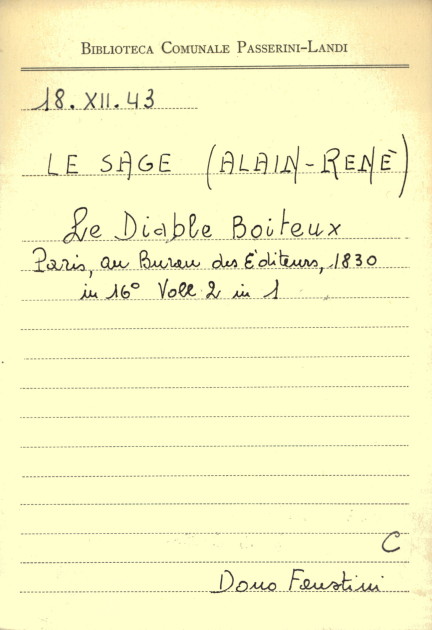 BIBLIOTECA COMUNALE PASSERINI-LANDI
18.XII.43
LE SAGE (ALAIN-RENÈ)
Le Diable Boiteux
Paris, au Bureau des Éditeurs, 1830
in 16° Voll 2 in 1
C
Dono Faustini